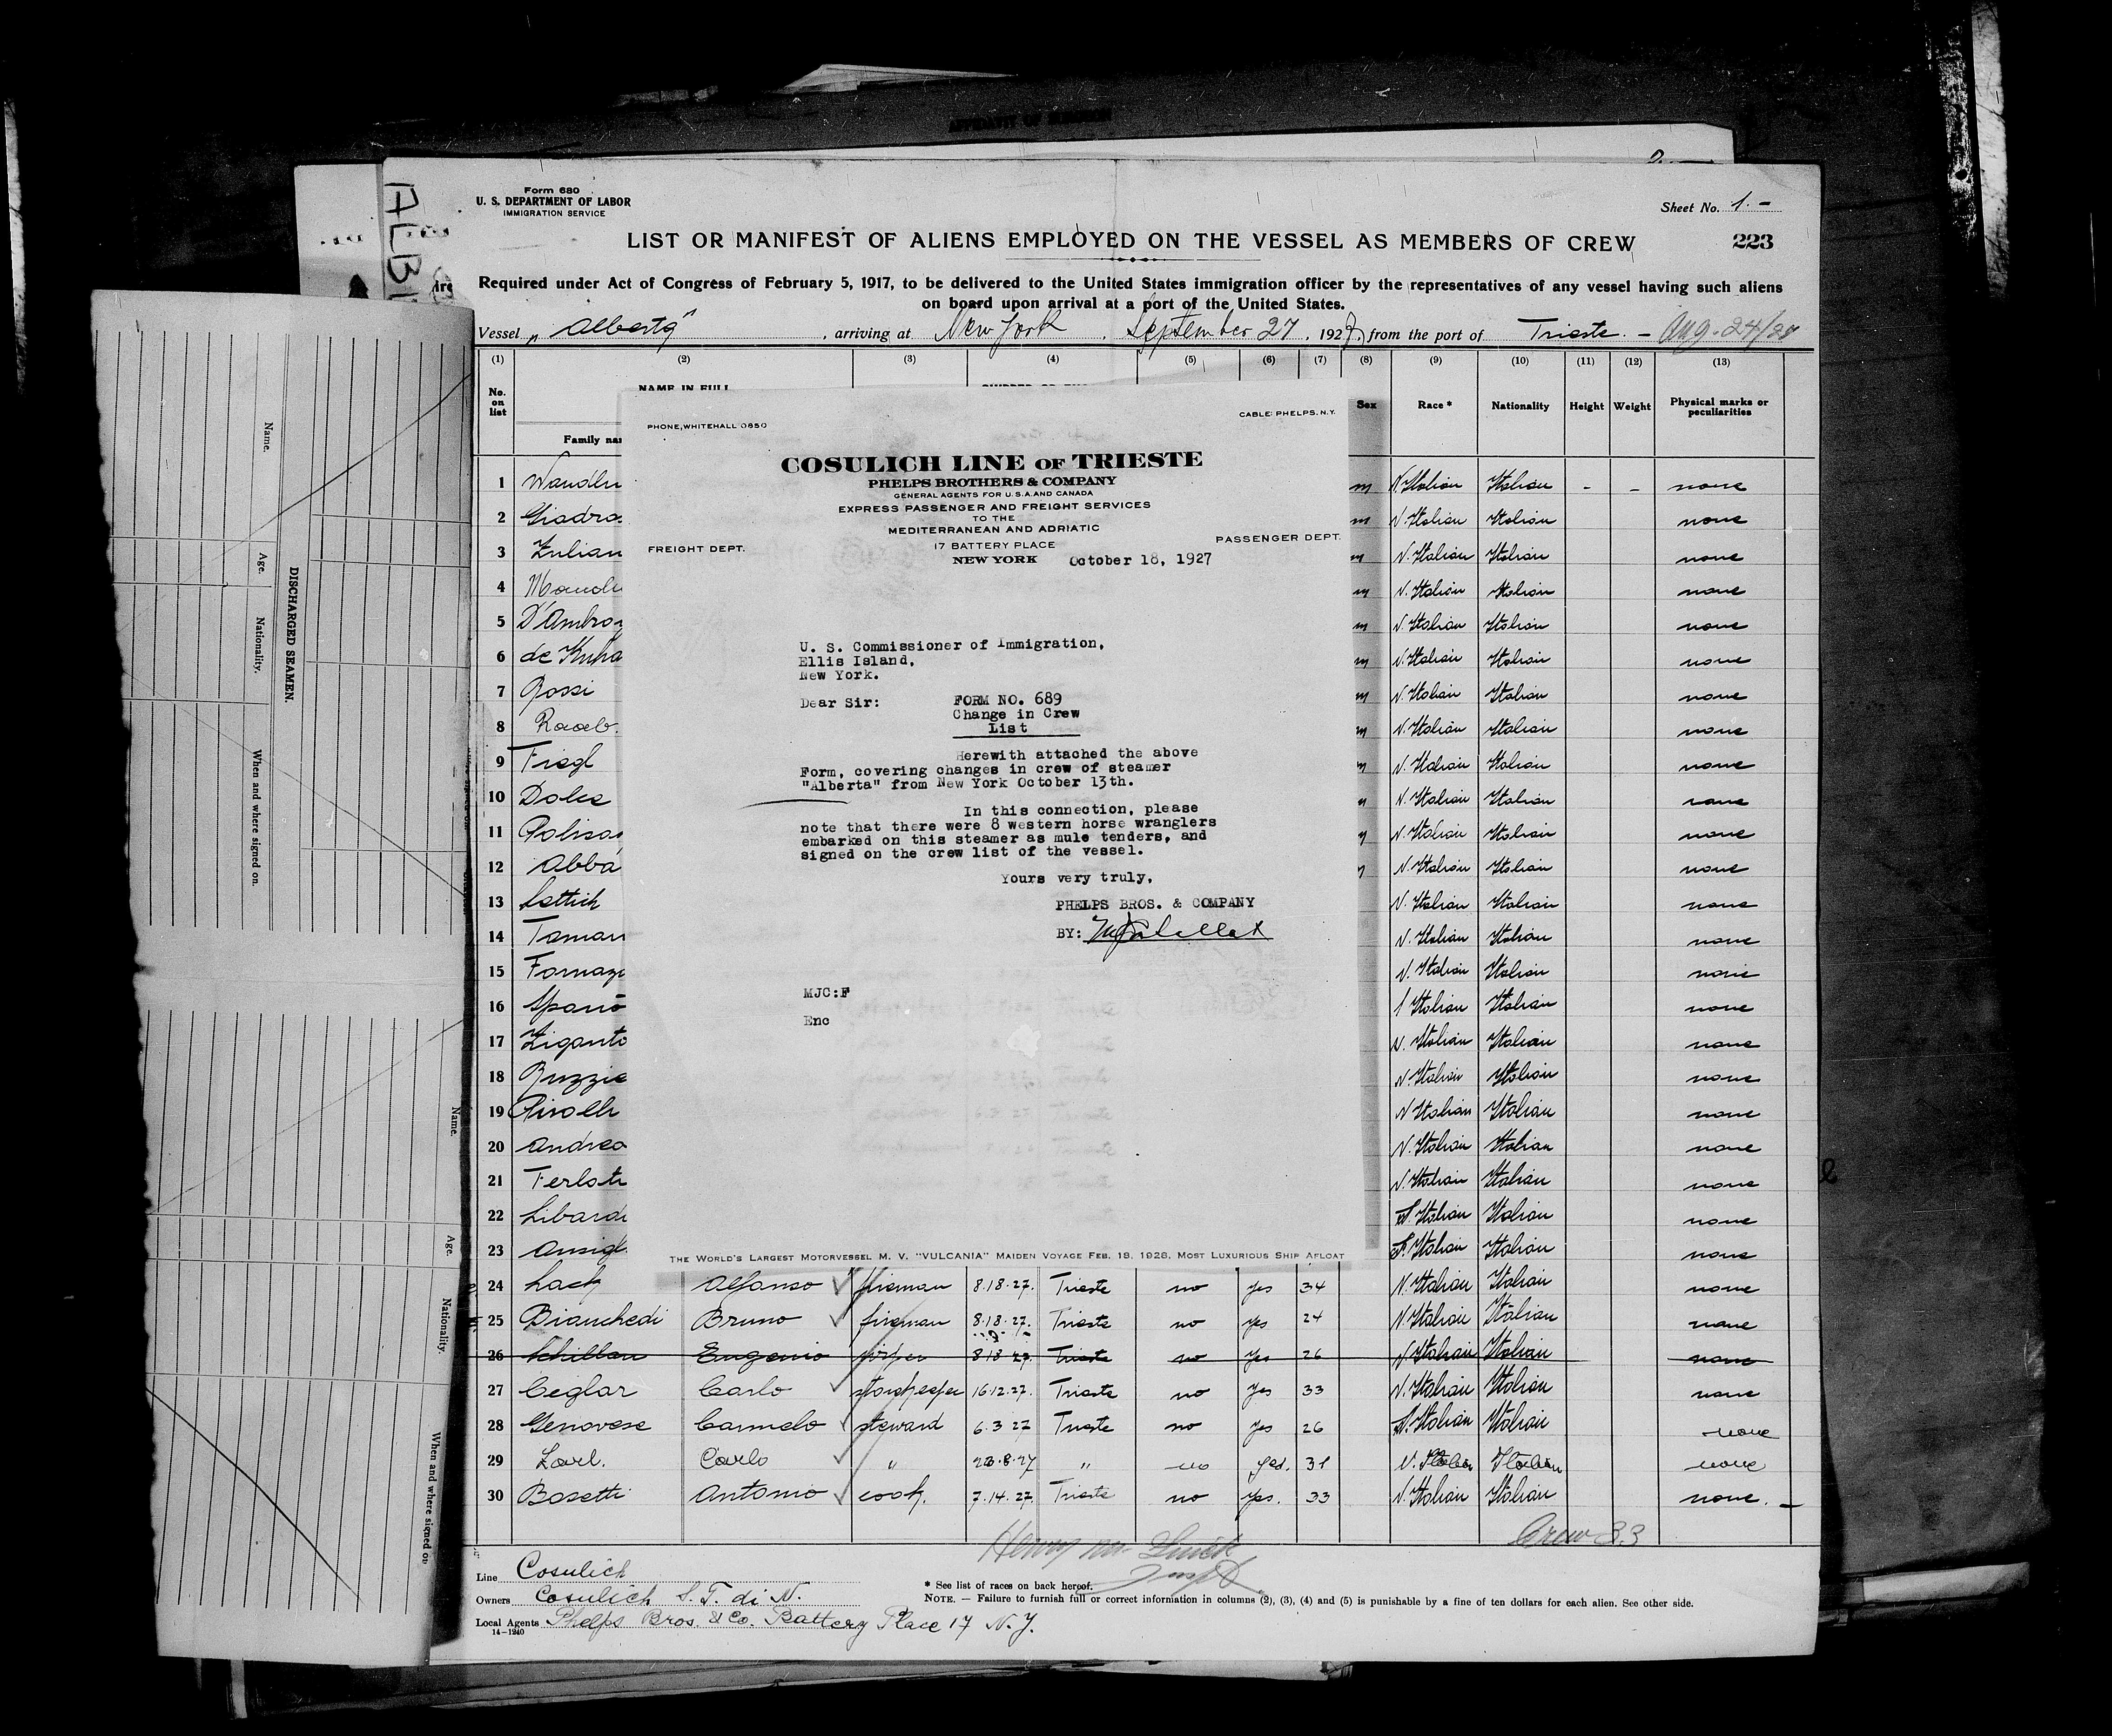 Form 680
U. S. DEPARTMENT OF LABOR
IMMIGRATION SERVICE
Sheet No. 1.-
LIST OR MANIFEST OF ALIENS EMPLOYED ON THE VESSEL AS MEMBERS OF CREW
223
Required under Act of Congress of February 5, 1917, to be delivered to the United States immigration officer by the representatives of any vessel having such aliens
on board upon arrival at a port of the United States.
Vessel "Alberta", arriving at New York, September 27, 1927, from the port of Trieste. - Aug. 24/27
(1) (2) (3) (4) (5) (6) (7) (8) (9) (10) (11) (12) (13)
No. on list
NAME IN FULL
Family na
Sex
Race *
Nationality
Height
Weight
Physical marks or peculiarities
PHONE, WHITEHALL 0850
CABLE: PHELPS, N.Y.
COSULICH LINE OF TRIESTE
PHELPS BROTHERS & COMPANY
GENERAL AGENTS FOR U.S.A. AND CANADA
EXPRESS PASSENGER AND FREIGHT SERVICES
TO THE
MEDITERRANEAN AND ADRIATIC
FREIGHT DEPT.
17 BATTERY PLACE
PASSENGER DEPT.
NEW YORK
October 18, 1927
U. S. Commissioner of Immigration,
Ellis Island,
New York.
Dear Sir: FORM NO. 689
Change in Crew
List
Herewith attached the above
Form, covering changes in crew of steamer
"Alberta" from New York October 13th.
In this connection, please
note that there were 8 western horse wranglers
embarked on this steamer as mule tenders, and
signed on the crew list of the vessel.
Yours very truly,
PHELPS BROS. & COMPANY
BY:
MJC:F
Enc
THE WORLD'S LARGEST MOTORVESSEL M. V. "VULCANIA" MAIDEN VOYAGE FEB. 18, 1928, MOST LUXURIOUS SHIP AFLOAT
1 m N. Italian Italian - - none
2 Giadro m N. Italian Italian none
3 Zulian m N. Italian Italian none
4 m N. Italian Italian none
5 D'Ambro m N. Italian Italian none
6 de m N. Italian Italian none
7 Rossi m N. Italian Italian none
8 Raab. m N. Italian Italian none
9 N. Italian Italian none
10 N. Italian Italian none
11 N. Italian Italian none
12 Abba N. Italian Italian none
13 N. Italian Italian none
14 N. Italian Italian none
15 N. Italian Italian none
16 Spano Italian Italian none
17 Ziganto N. Italian Italian none
18 N. Italian Italian none
19 N. Italian Italian none
20 Andrea N. Italian Italian none
21 N. Italian Italian none
22 S. Italian Italian none
23 S. Italian Italian none
24 Alfonso fireman 8.18.27. Trieste no yes 34 N. Italian Italian none
25 Bianchedi Bruno fireman 8.18.27. Trieste no yes 24 N. Italian Italian none
26 Schillan Eugenio wiper 8.18.27. Trieste no yes 26 N. Italian Italian none
27 Ceglar Carlo storekeeper 16.12.27. Trieste no yes 33 N. Italian Italian none
28 Genovese Carmelo steward 6.3.27 Trieste no yes 26 S. Italian Italian none
29 Carlo " 23.8.27 " no yes. 31 N. Italian Italian none
30 Bosetti Antonio cook. 7.14.27. Trieste no yes. 33 N. Italian Italian none. -
Crew 33
Line Cosulich
Owners Cosulich S. T. di N.
Local Agents Phelps Bros. & Co. Battery Place 17 N.Y.
14-1240
* See list of races on back hereof.
NOTE. — Failure to furnish full or correct information in columns (2), (3), (4) and (5) is punishable by a fine of ten dollars for each alien. See other side.
DISCHARGED SEAMEN.
Name.
Age.
Nationality.
When and where signed on.
Name.
Age.
Nationality.
When and where signed on